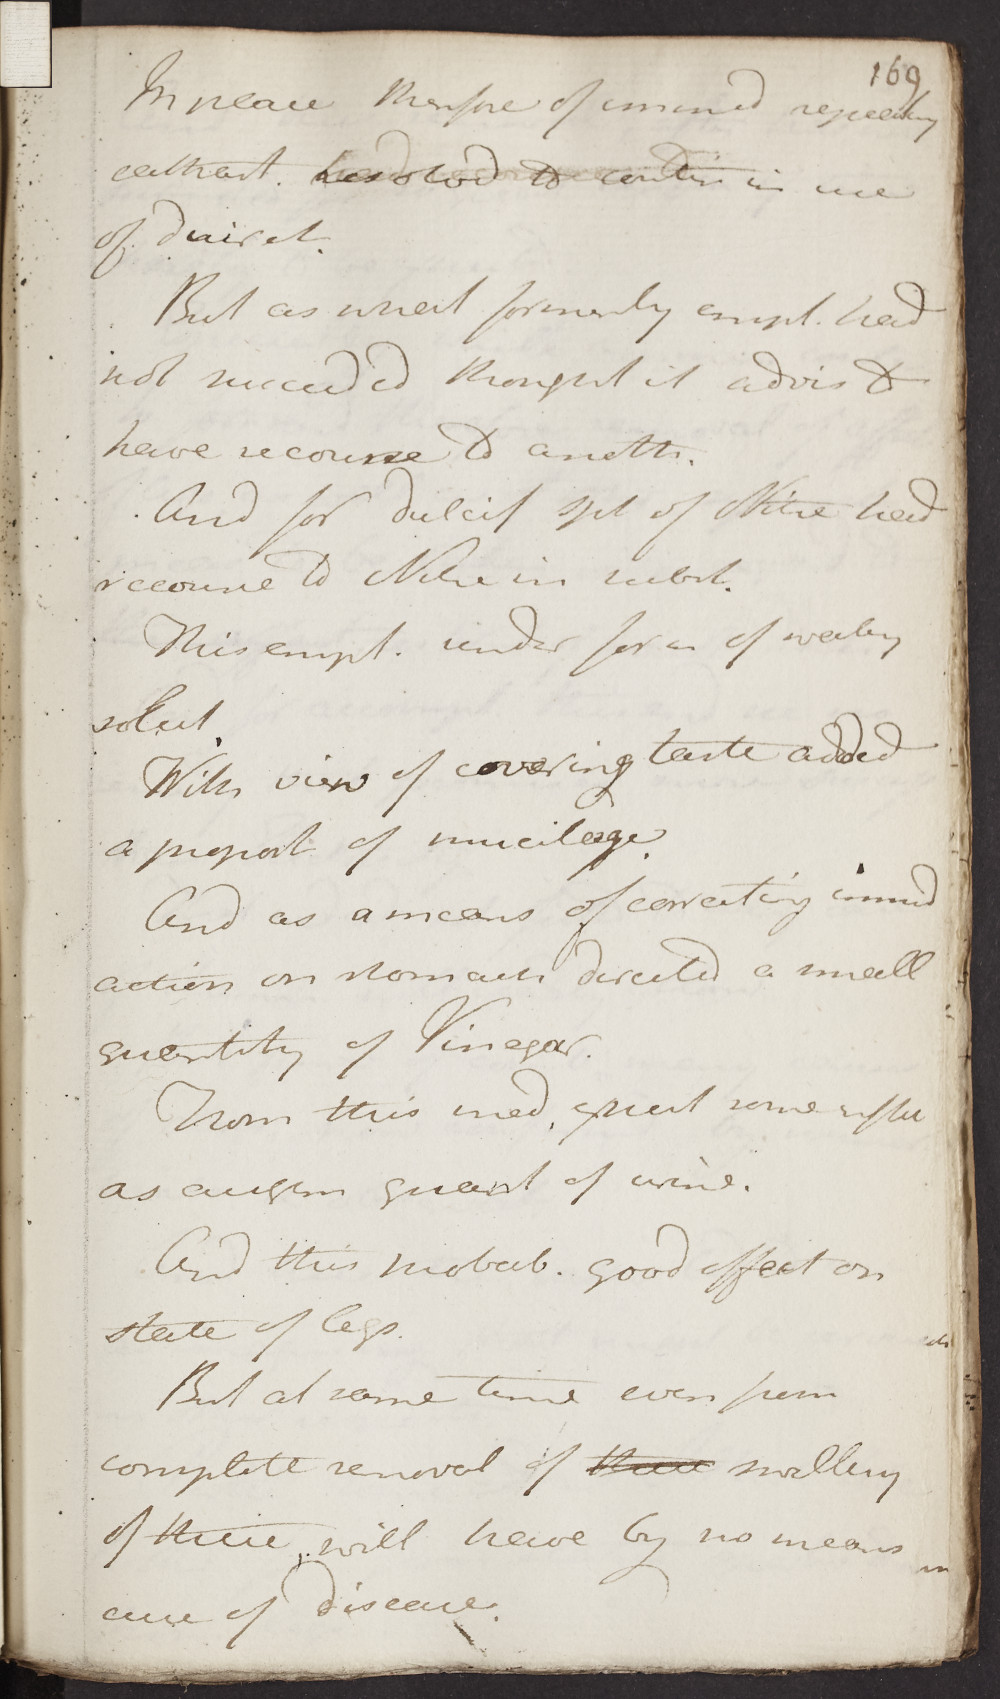 169
In place therefore of immed repeating
cathart. resolvd to contin in use
of diuret.
But as what formerly empl. had
not succeeded thought it advis to
have recourse to anoth.
And for dulcif spt of Nitre had
recourse to Nitre in subst.
This empl. under form of watery
solut.
With view of covering taste added
a proport of mucilage.
And as a means of correcting immed
action on stomach directed a small
quantity of Vinegar.
From this med. expect some effect
as augm quant of urine.
And this probab. good effect on
state of legs.
But at same time even from
complete removal of these swelling
of these will have by no means
cure of disease.